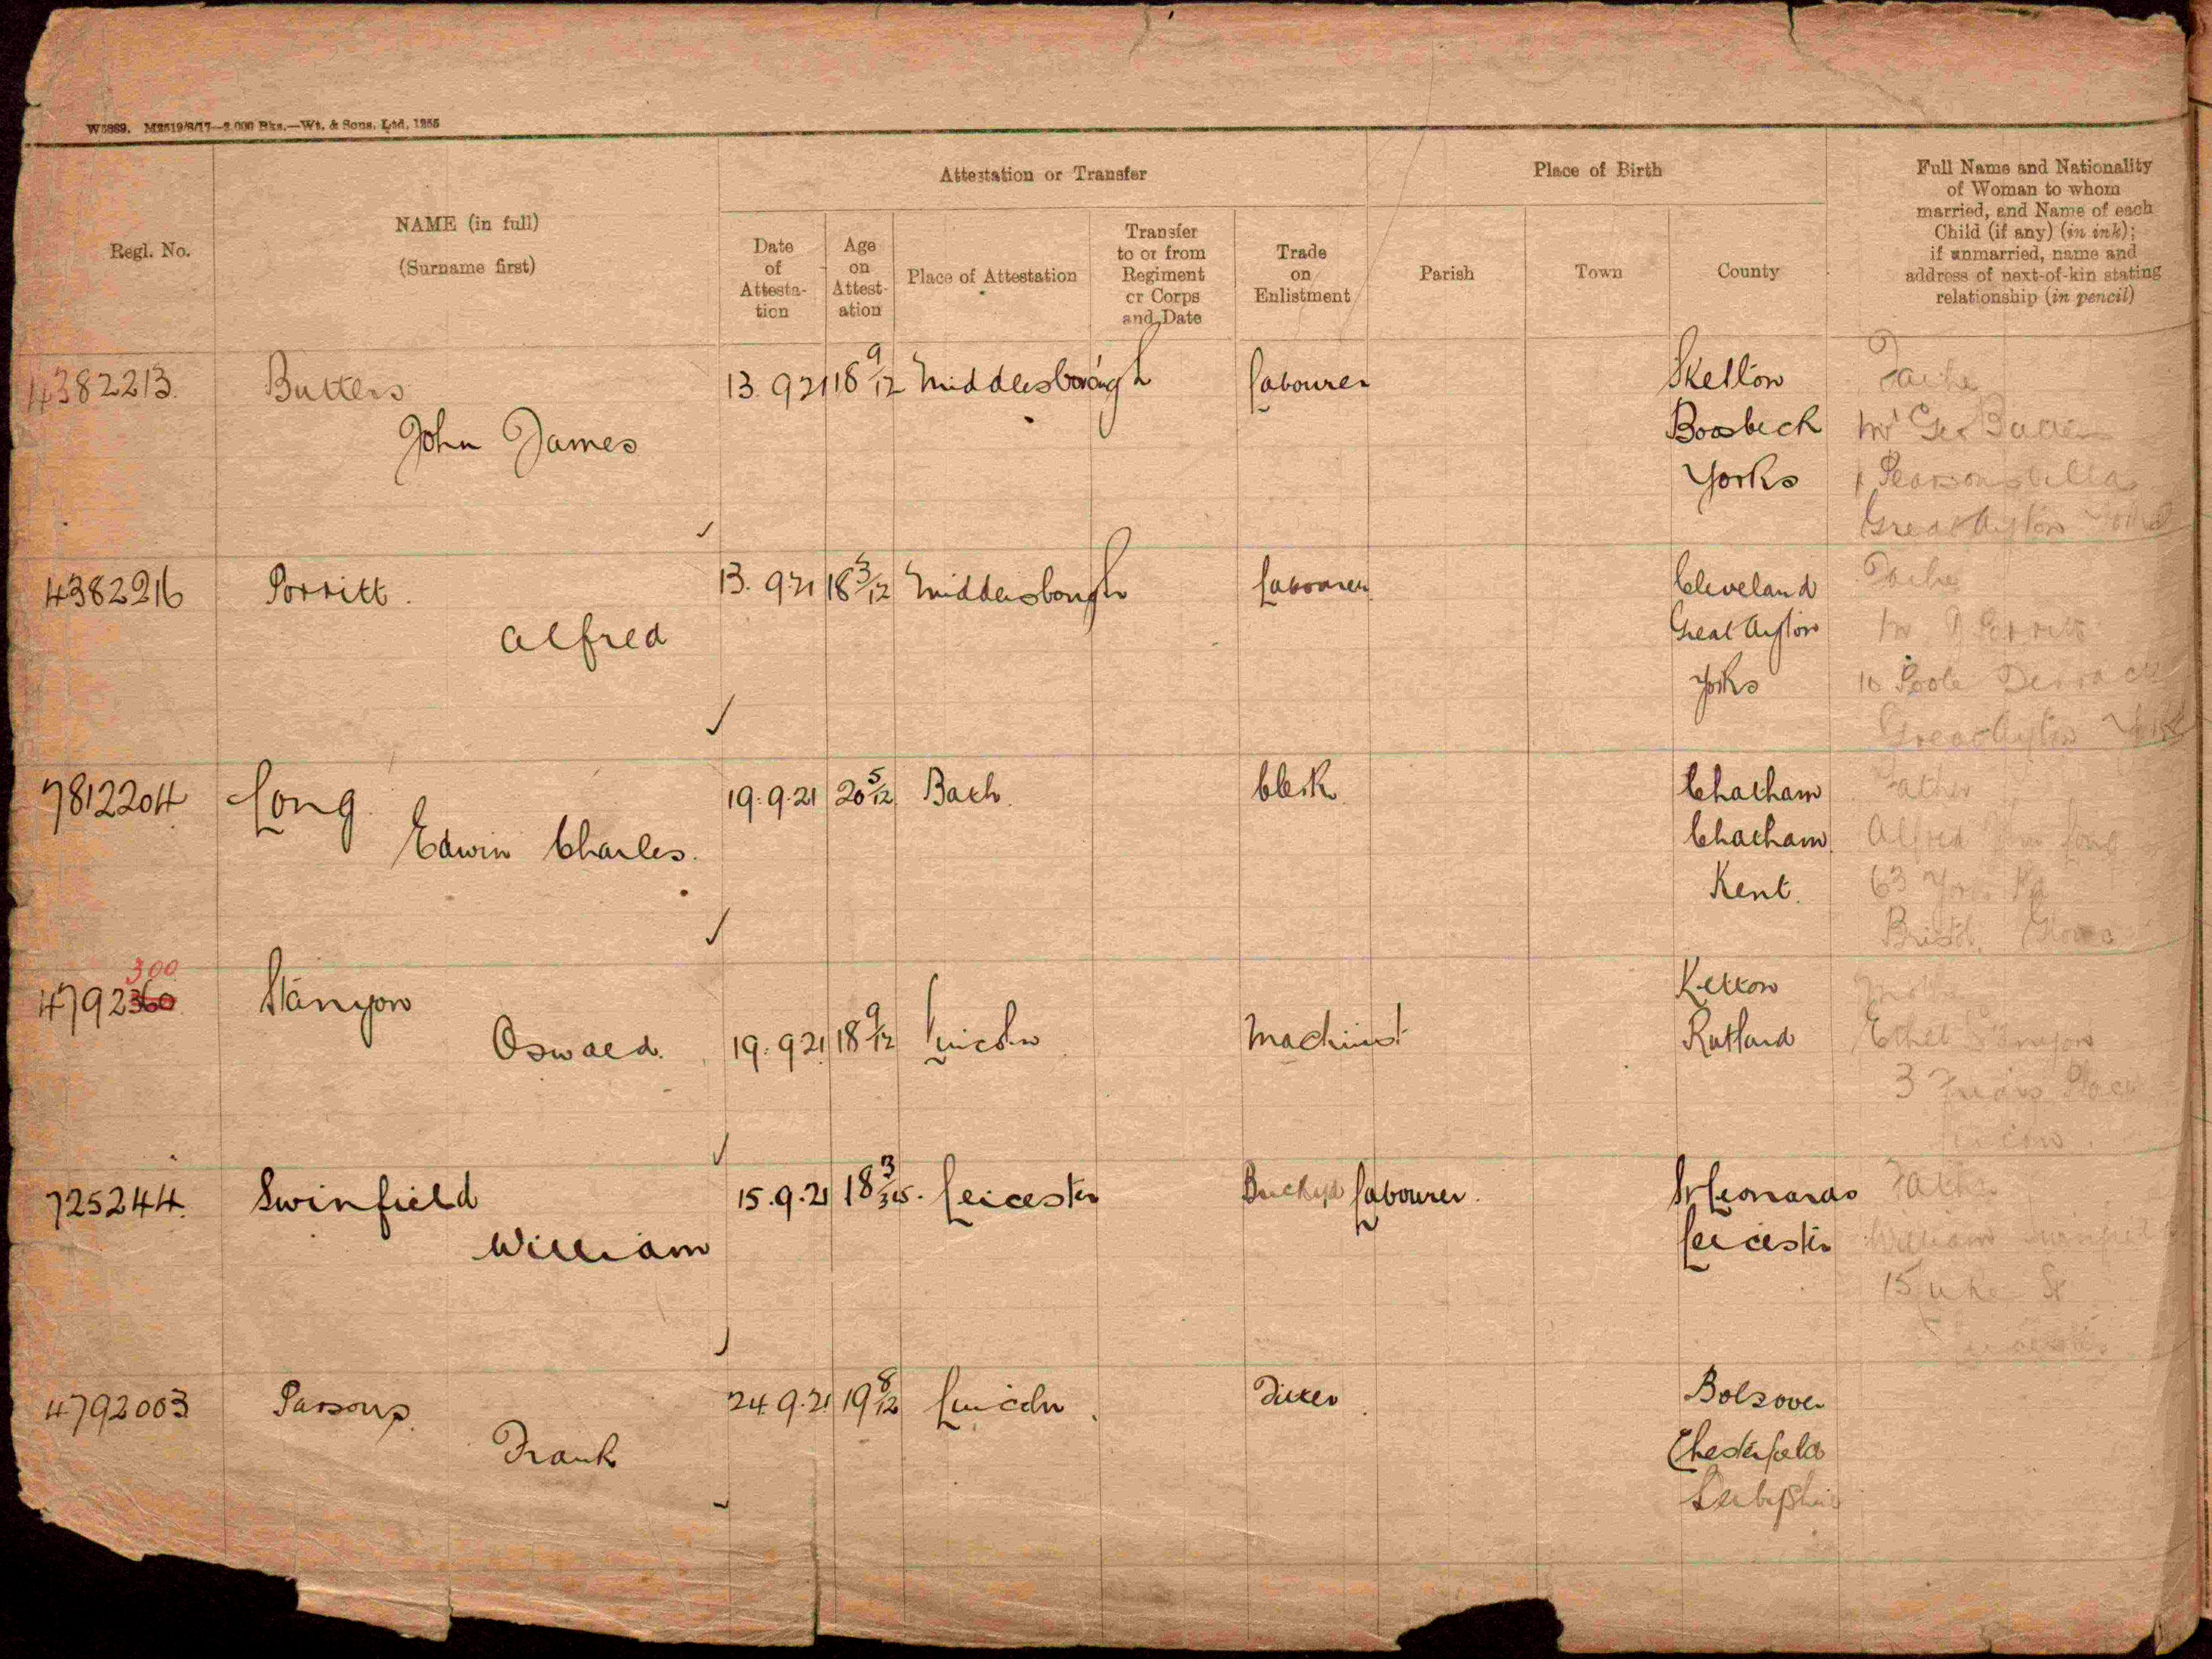 W5889. M2519/8/17—2,000 Bks.—Wt. & Sons, Ltd. 1255
Regl. No.
NAME (in full)
(Surname first)
Attestation or Transfer
Date
of
Attesta-
tion
Age
on
Attest-
ation
Place of Attestation
Transfer
to or from
Regiment
or Corps
and Date
Trade
on
Enlistment
Place of Birth
Parish
Town
County
Full Name and Nationality
of Woman to whom
married, and Name of each
Child (if any) (in ink);
if unmarried, name and
address of next-of-kin stating
relationship (in pencil)
4382213 Butters 13.9.21 18 9/12 Middlesborough Labourer Skelton
John James Boosbeck
Yorks
Great Ayton Yorks
4382216 Porritt. 13.9.21 18 3/12 Middlesborough Labourer Cleveland
Alfred Great Ayton
Yorks 10 Poole Terrace
Great Ayton Yorks
7812204 Long 19.9.21 20 5/12 Bath. Clerk Chatham Father
Edwin Charles. Chatham Alfred Long
Kent. 63 Rd
Bristol
300
4792360 Stanyon Ketton Mother
Oswald. 19.9.21 18 9/12 Lincoln Machinist Rutland Ethel Stanyon
3 Friars Place
725244. Swinfield 15.9.21 18 3/365. Leicester Brickyd Labourer. St Leonards Father
William Leicester William Swinfield
15 St
4792003 Parsons. 24.9.21 19 8/12 Lincoln. Bolsover
Frank Chesterfield
Derbyshire